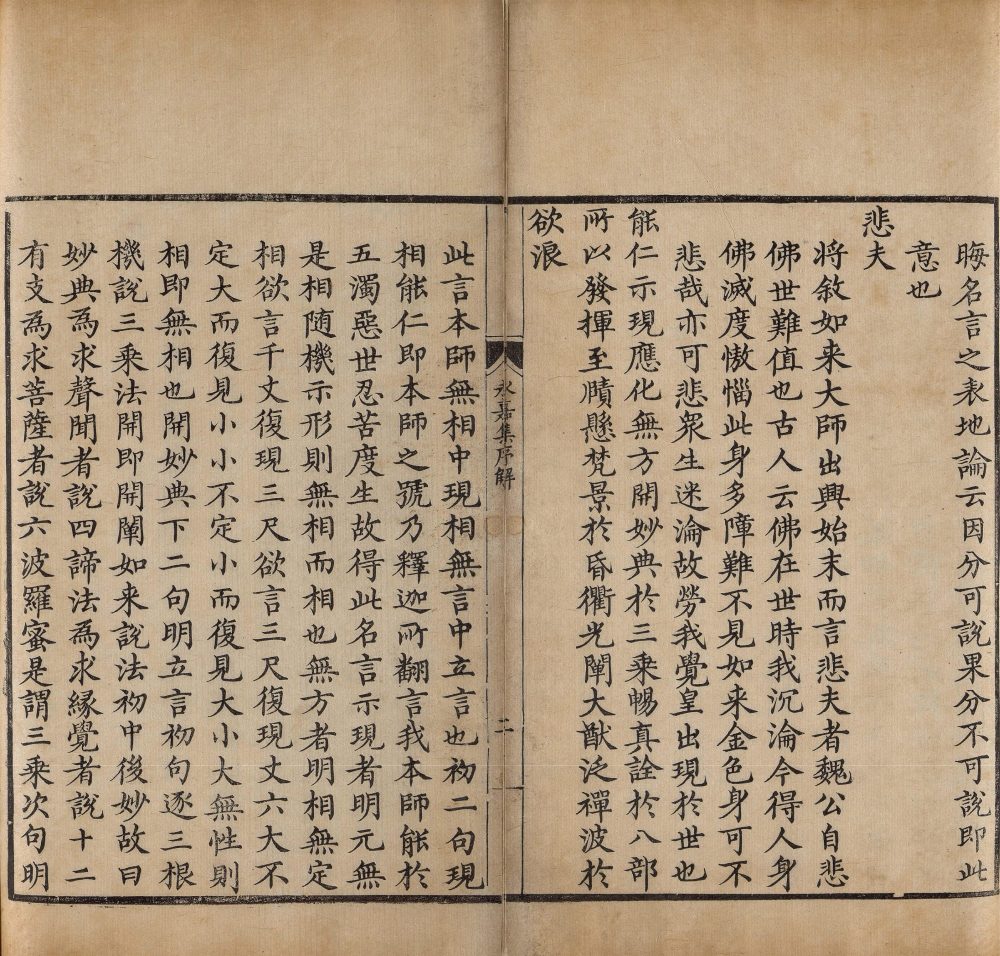 晦名言之表地論云因分可說果分不可說即此
意也
悲夫
將敘如来大師出興始末而言悲夫者魏公自悲
佛世難值也古人云佛在世時我沉淪今得人身
佛滅度慠惱此身多障難不見如来金色身可不
悲哉亦可悲衆生迷淪故勞我覺皇出現於世也
能仁示現應化無方開妙典於三乘暢真詮於八部
所以發揮至賾懸梵景於昏衢光闡大猷泛禪波於
欲浪
永嘉集序解
二
此言本師無相中現相無言中立言也初二句現
相能仁即本師之號乃釋迦所翻言我本師能於
五濁惡世忍苦度生故得此名言示現者明元無
是相隨機示形則無相而相也無方者明相無定
相欲言千丈復現三尺欲言三尺復現丈六大不
定大而復見小小不定小而復見大小大無性則
相即無相也開妙典下二句明立言初句逐三根
機說三乘法開即開闡如来說法初中後妙故曰
妙典為求聲聞者說四諦法為求緣覺者說十二
有支為求菩薩者說六波羅蜜是謂三乘次句明